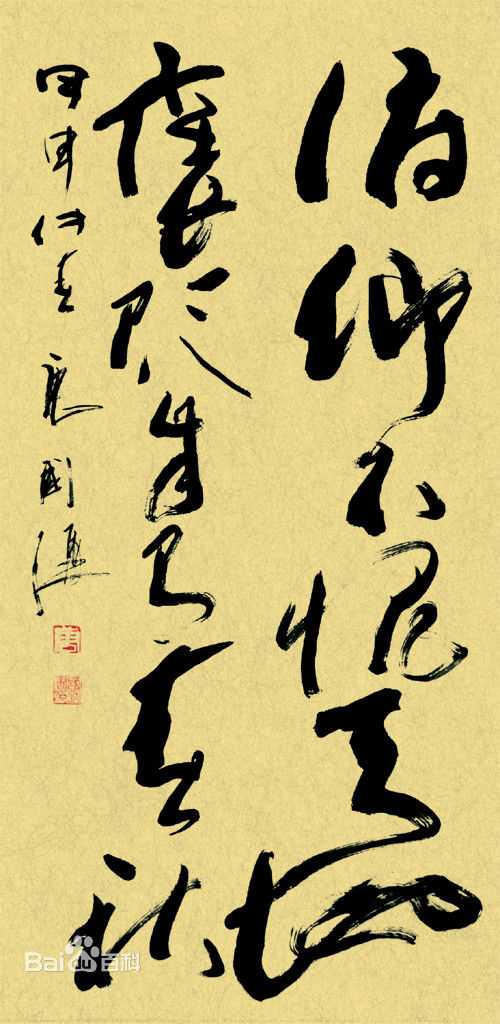 俯仰不愧天地
褒贬自有春秋
甲申仲春
Bai百科